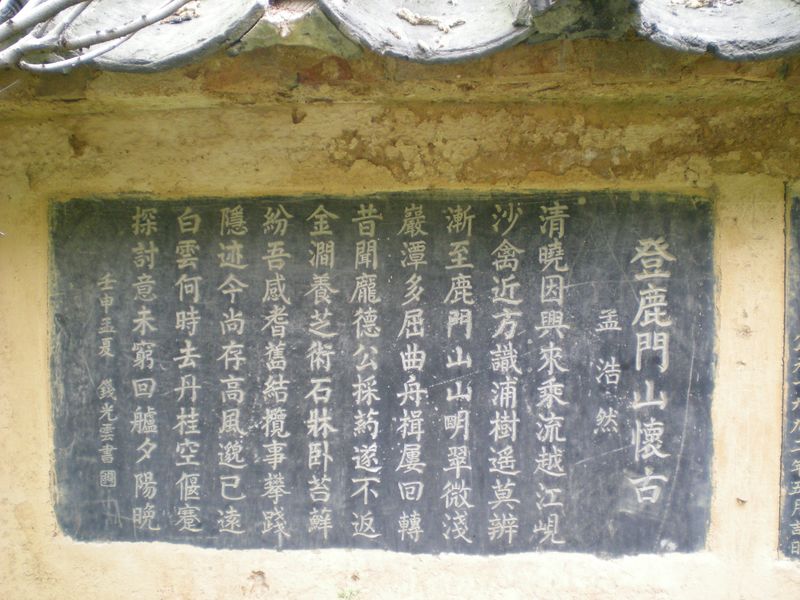 登鹿門山懷古
孟浩然
清曉因興來乘流越江峴
沙禽近方識浦樹遙莫辨
漸至鹿門山山明翠微淺
巖潭多屈曲舟楫屢回轉
昔聞龐德公採葯遂不返
金澗養芝術石牀卧苔蘚
紛吾感耆舊結攬事攀踐
隱迹今尚存高風邈已遠
白雲何時去丹桂空偃蹇
探討意未窮回艫夕陽晚
壬申孟夏 錢光雲書